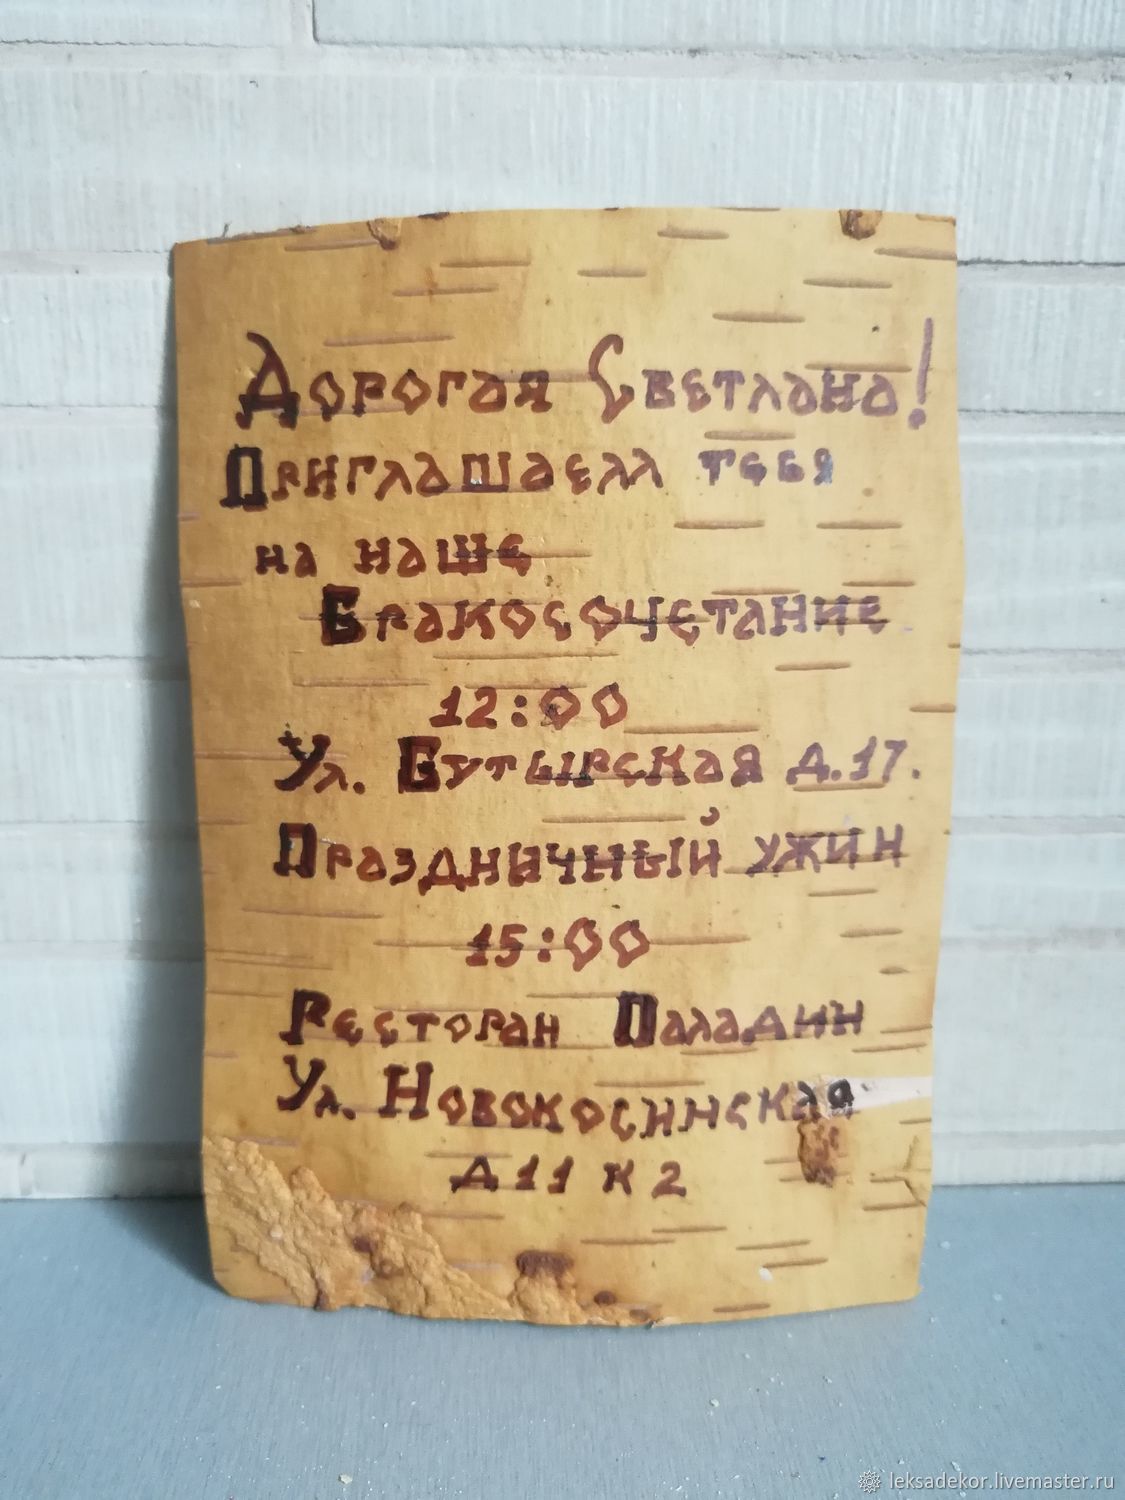 Дорогая Светлана!
Приглашаем тебя
на наше
Бракосочетание
12:00
Ул. Бутырская д.17.
Праздничный ужин
15:00
Ресторан Паладин
Ул. Новокосинская
д 11 к 2
leksadekor.livemaster.ru